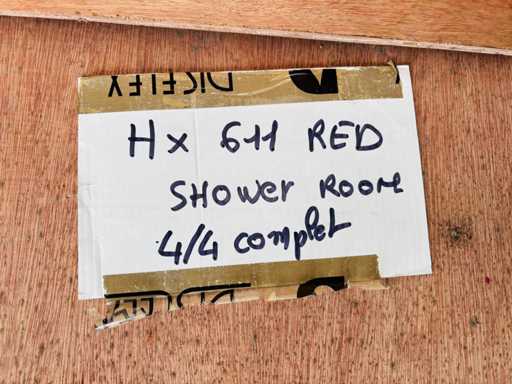 DISFLEX
Hx 611 RED
SHOWer ROOM
4/4 complet